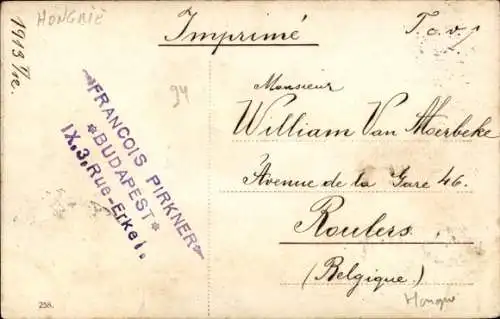 HONGRIE
1913 1/12.
Imprimé
T.c.v.p
94
FRANCOIS PIRKNER
*BUDAPEST*
IX, 3, Rue-Erkel.
Monsieur
William Van Moerbeke
Avenue de la Gare 46.
Roulers.
(Belgique.)
Hongrie
258.